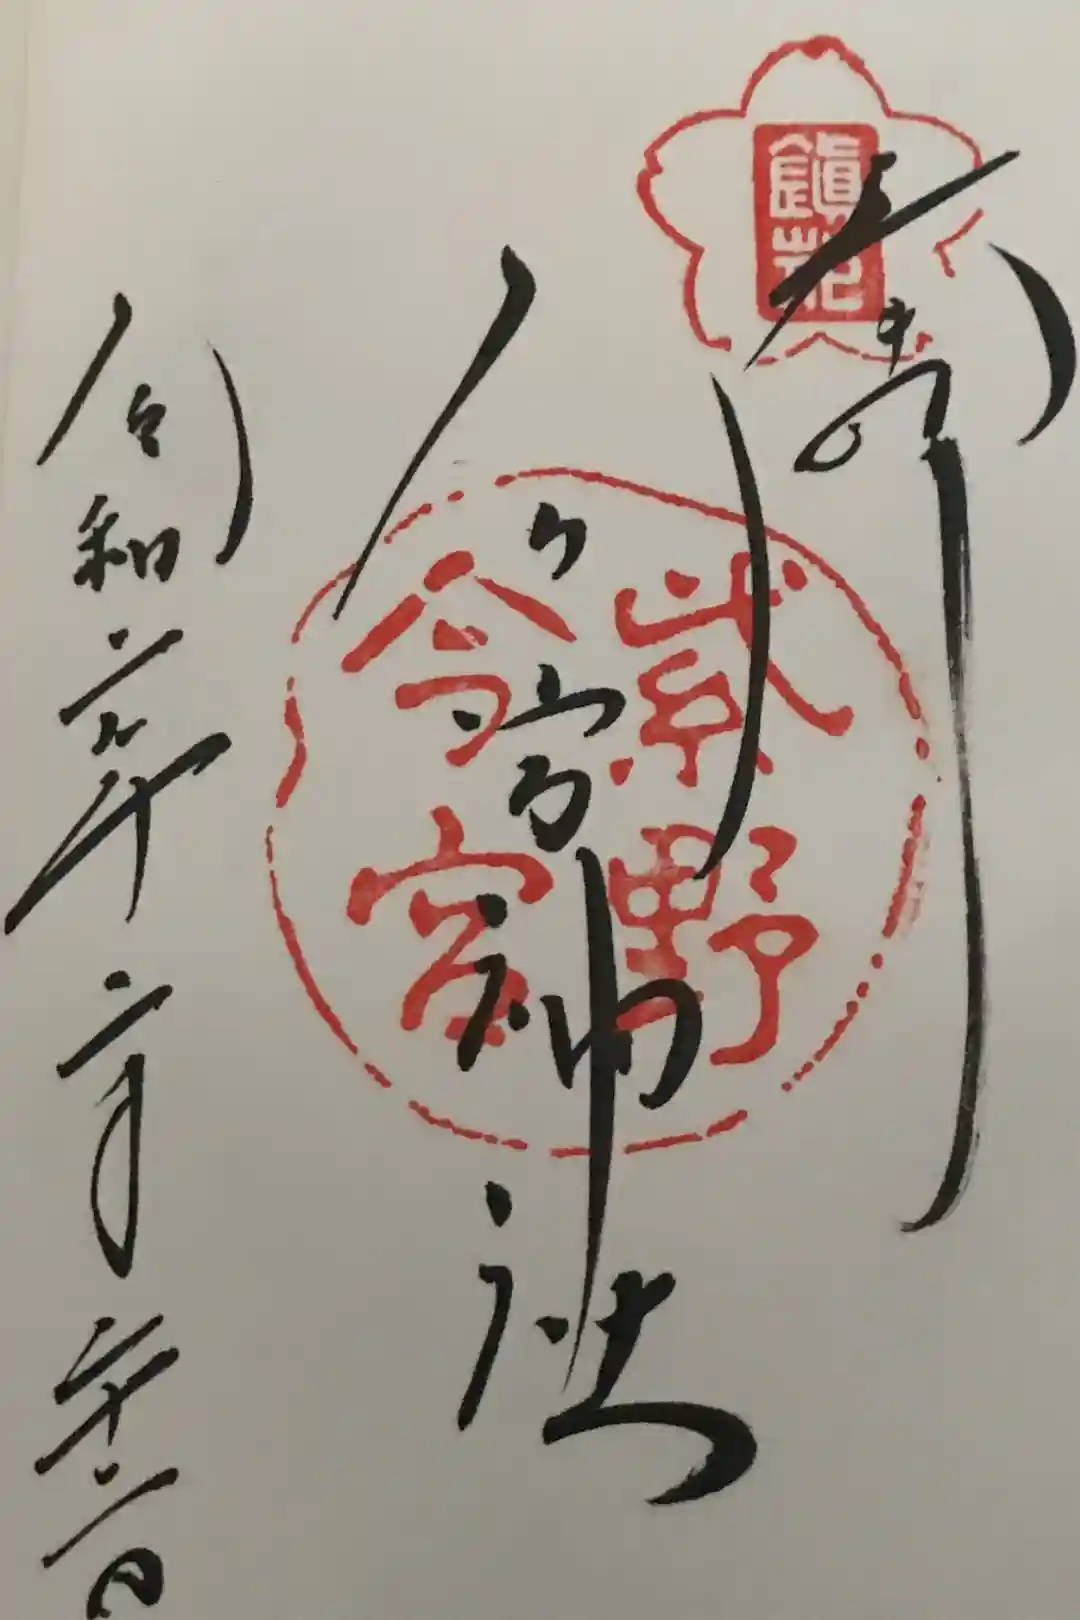 鎮花
奉拝
紫野
今宮
今宮神社
令和二年二月二十二日